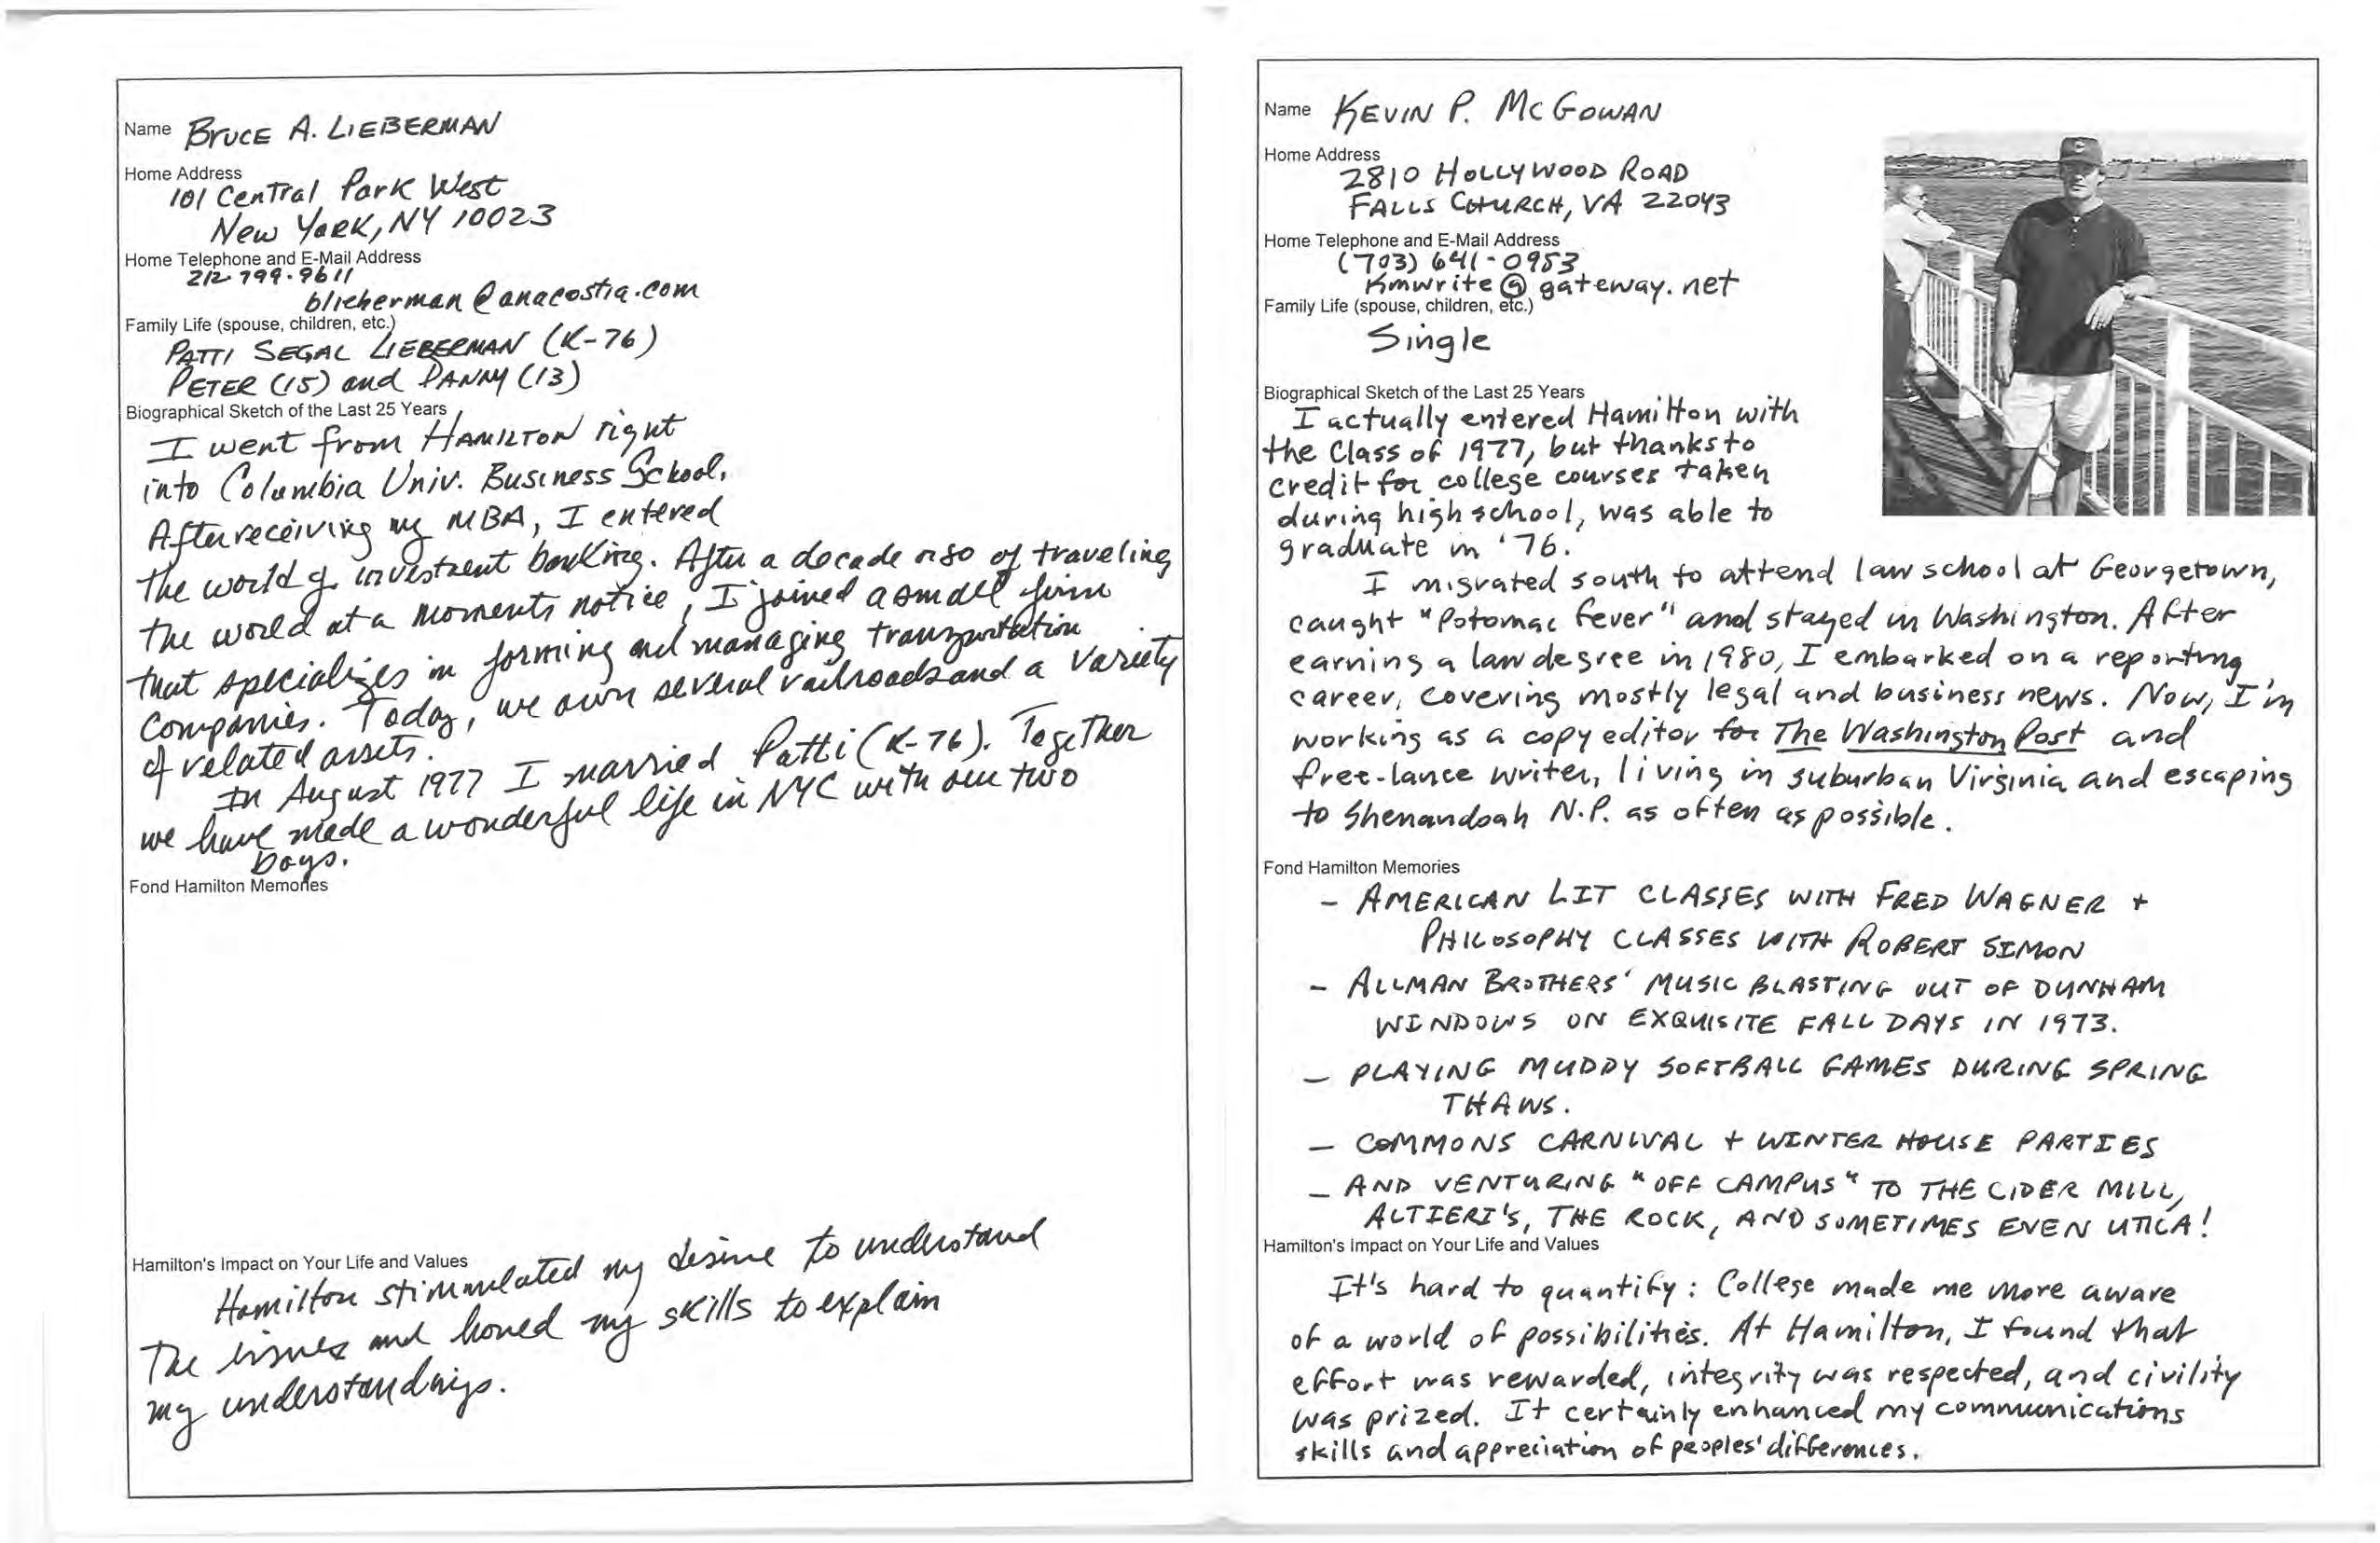 Name BRUCE A. LIEBERMAN
Home Address
101 Central Park West
New York, NY 10023
Home Telephone and E-Mail Address
212-799-9611
blieberman@anacostia.com
Family Life (spouse, children, etc.)
PATTI SEGAL LIEBERMAN (K-76)
PETER (15) and DANNY (13)
Biographical Sketch of the Last 25 Years
I went from HAMILTON right
into Columbia Univ. Business School.
After receiving my MBA, I entered
the world of investment banking. After a decade or so of traveling
the world at a moments notice, I joined a small firm
that specializes in forming and managing transportation
companies. Today, we own several railroads and a variety
of related assets.
In August 1977 I married Patti (K-76). Together
we have made a wonderful life in NYC with our two
boys.
Fond Hamilton Memories
Hamilton's Impact on Your Life and Values
Hamilton stimulated my desire to understand
The issues and honed my skills to explain
my understandings.
Name KEVIN P. MCGOWAN
Home Address
2810 HOLLYWOOD ROAD
FALLS CHURCH, VA 22043
Home Telephone and E-Mail Address
(703) 641-0953
Kmwrite@gateway.net
Family Life (spouse, children, etc.)
Single
Biographical Sketch of the Last 25 Years
I actually entered Hamilton with
the Class of 1977, but thanks to
credit for college courses taken
during high school, was able to
graduate in '76.
I migrated south to attend law school at Georgetown,
caught "Potomac fever" and stayed in Washington. After
earning a law degree in 1980, I embarked on a reporting
career, covering mostly legal and business news. Now, I'm
working as a copy editor for The Washington Post and
free-lance writer, living in suburban Virginia and escaping
to Shenandoah N.P. as often as possible.
Fond Hamilton Memories
- AMERICAN LIT CLASSES WITH FRED WAGNER +
PHILOSOPHY CLASSES WITH ROBERT SIMON
- ALLMAN BROTHERS' MUSIC BLASTING OUT OF DUNHAM
WINDOWS ON EXQUISITE FALL DAYS IN 1973.
- PLAYING MUDDY SOFTBALL GAMES DURING SPRING
THAWS.
- COMMONS CARNIVAL + WINTER HOUSE PARTIES
- AND VENTURING "OFF CAMPUS" TO THE CIDER MILL,
ALTIERI'S, THE ROCK, AND SOMETIMES EVEN UTICA!
Hamilton's Impact on Your Life and Values
It's hard to quantify: College made me more aware
of a world of possibilities. At Hamilton, I found that
effort was rewarded, integrity was respected, and civility
was prized. It certainly enhanced my communications
skills and appreciation of peoples' differences.